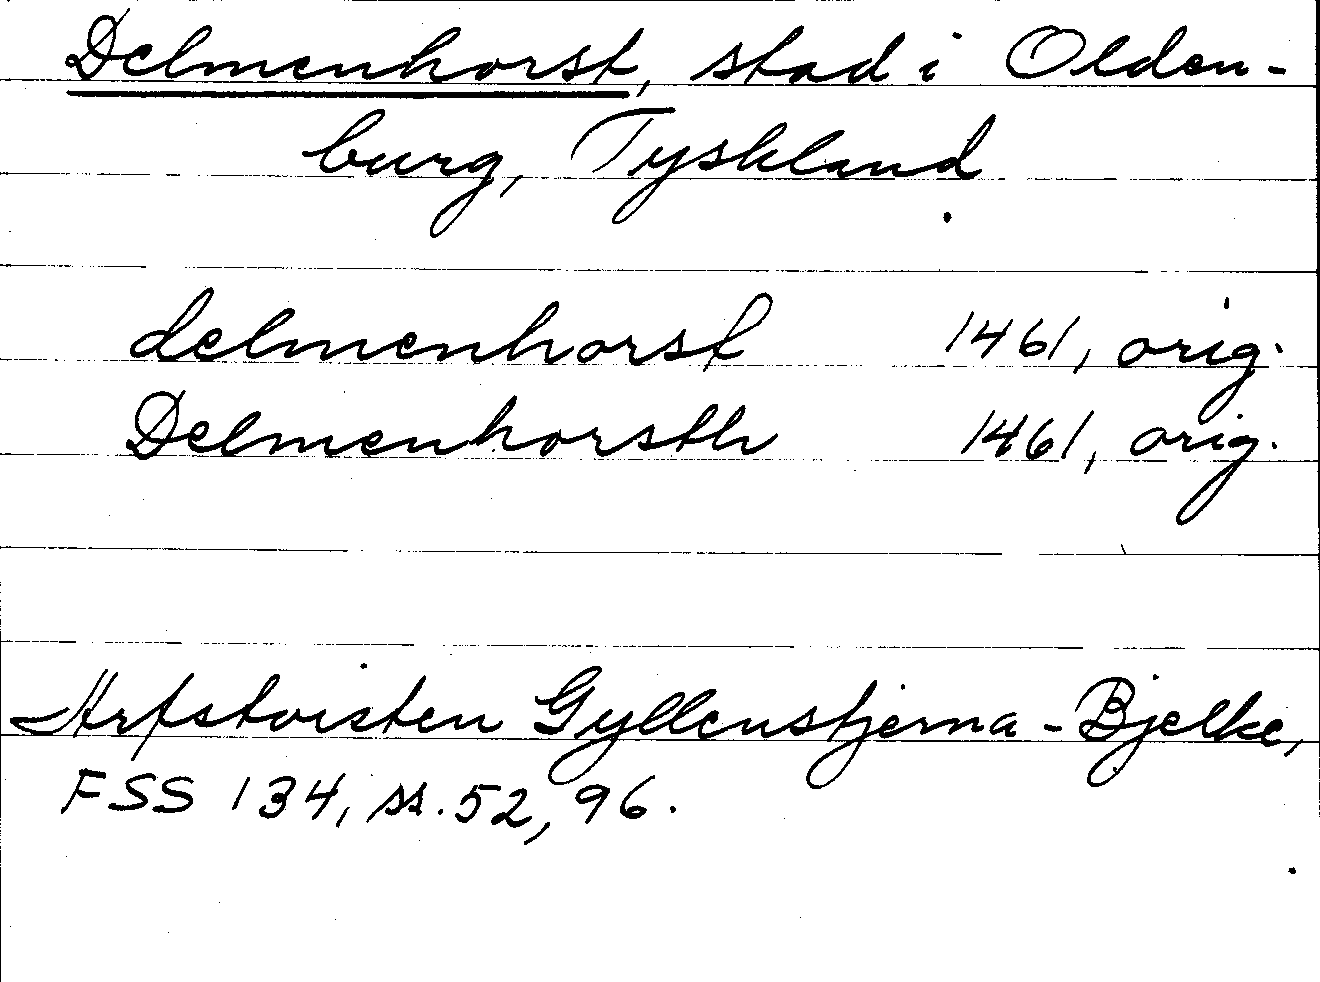 Delmenhorst, stad i Olden-
burg, Tyskland
delmenhorst 1461, orig.
Delmenhorsth 1461, orig.
Arfstvisten Gyllenstjerna-Bjelke,
FSS 134, ss. 52, 96.